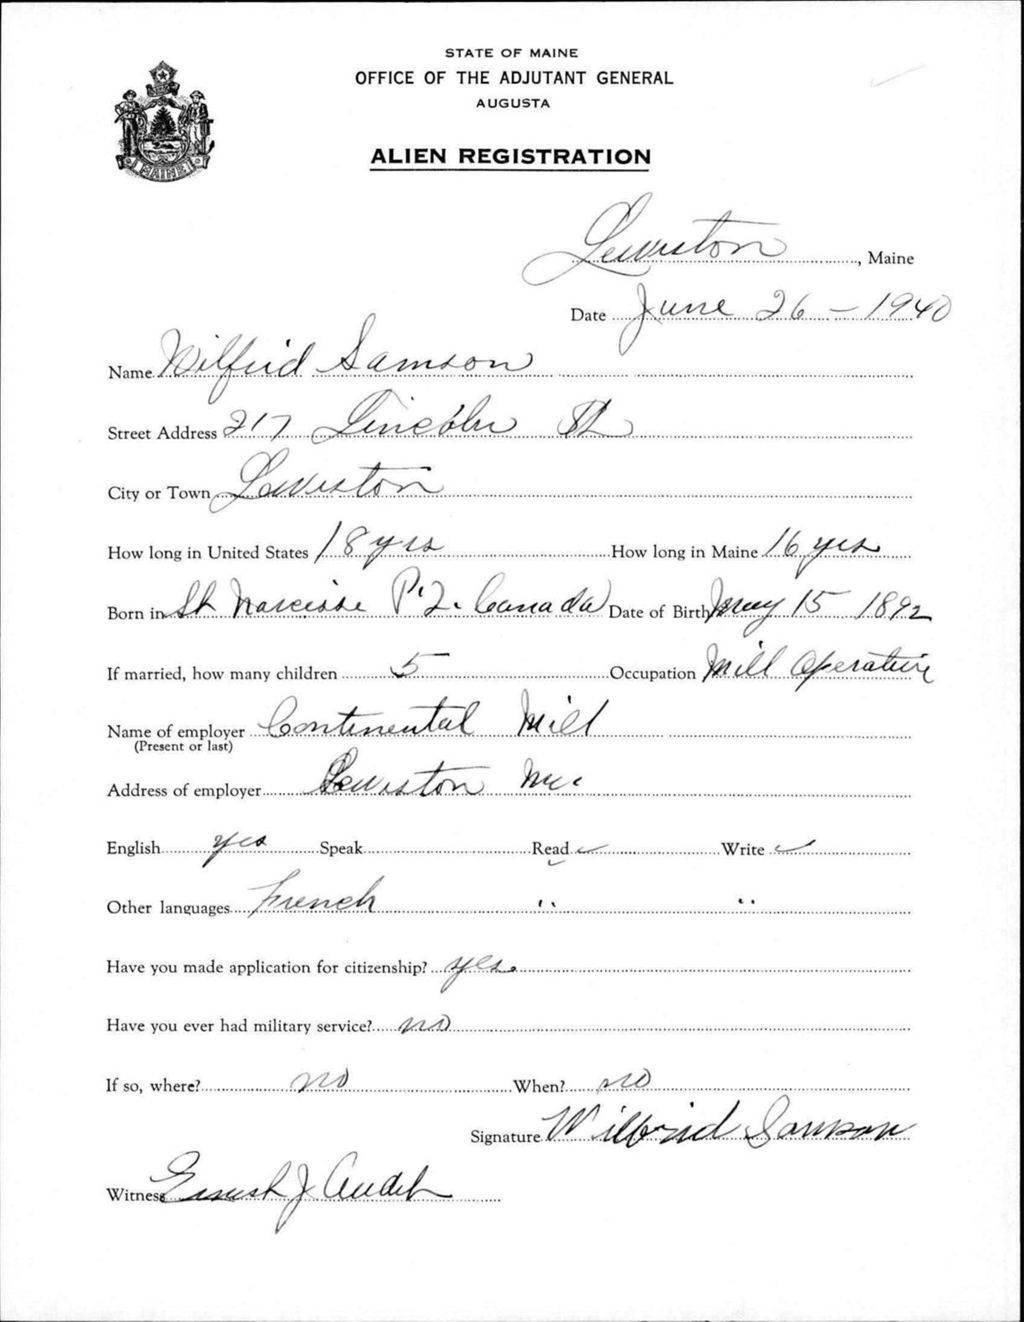 STATE OF MAINE
OFFICE OF THE ADJUTANT GENERAL
AUGUSTA
ALIEN REGISTRATION
MAINE
Lewiston, Maine
Date June 26 - 1940
Name Wilfrid Samson
Street Address 217 Lincoln St
City or Town Lewiston
How long in United States 18 yrs How long in Maine 16 yrs
Born in St Narcisse P.Q. Canada Date of Birth May 15 1892
If married, how many children 5 Occupation Mill Operative
Name of employer Continental Mill
(Present or last)
Address of employer Lewiston Me.
English yes Speak Read ✓ Write ✓
Other languages French " "
Have you made application for citizenship? yes.
Have you ever had military service? no
If so, where? no When? no
Signature Wilfrid Samson
Witness Ernest J Audet